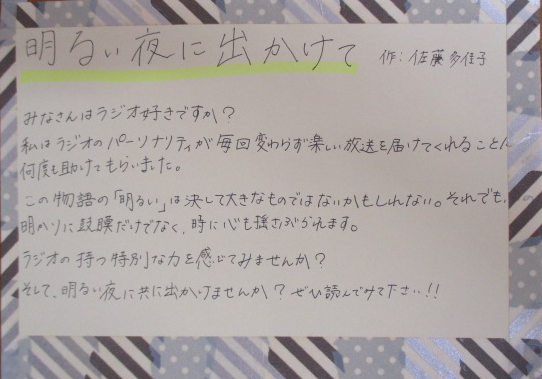 明るい夜に出かけて
作：佐藤多佳子
みなさんはラジオ好きですか？
私はラジオのパーソナリティが毎回変わらず楽しい放送を届けてくれることに
何度も助けてもらいました。
この物語の「明るい」は決して大きなものではないかもしれない。それでも、
明かりに鼓膜だけでなく、時に心も揺さぶられます。
ラジオの持つ特別な力を感じてみませんか？
そして、明るい夜に共に出かけませんか？ぜひ読んでみて下さい!!